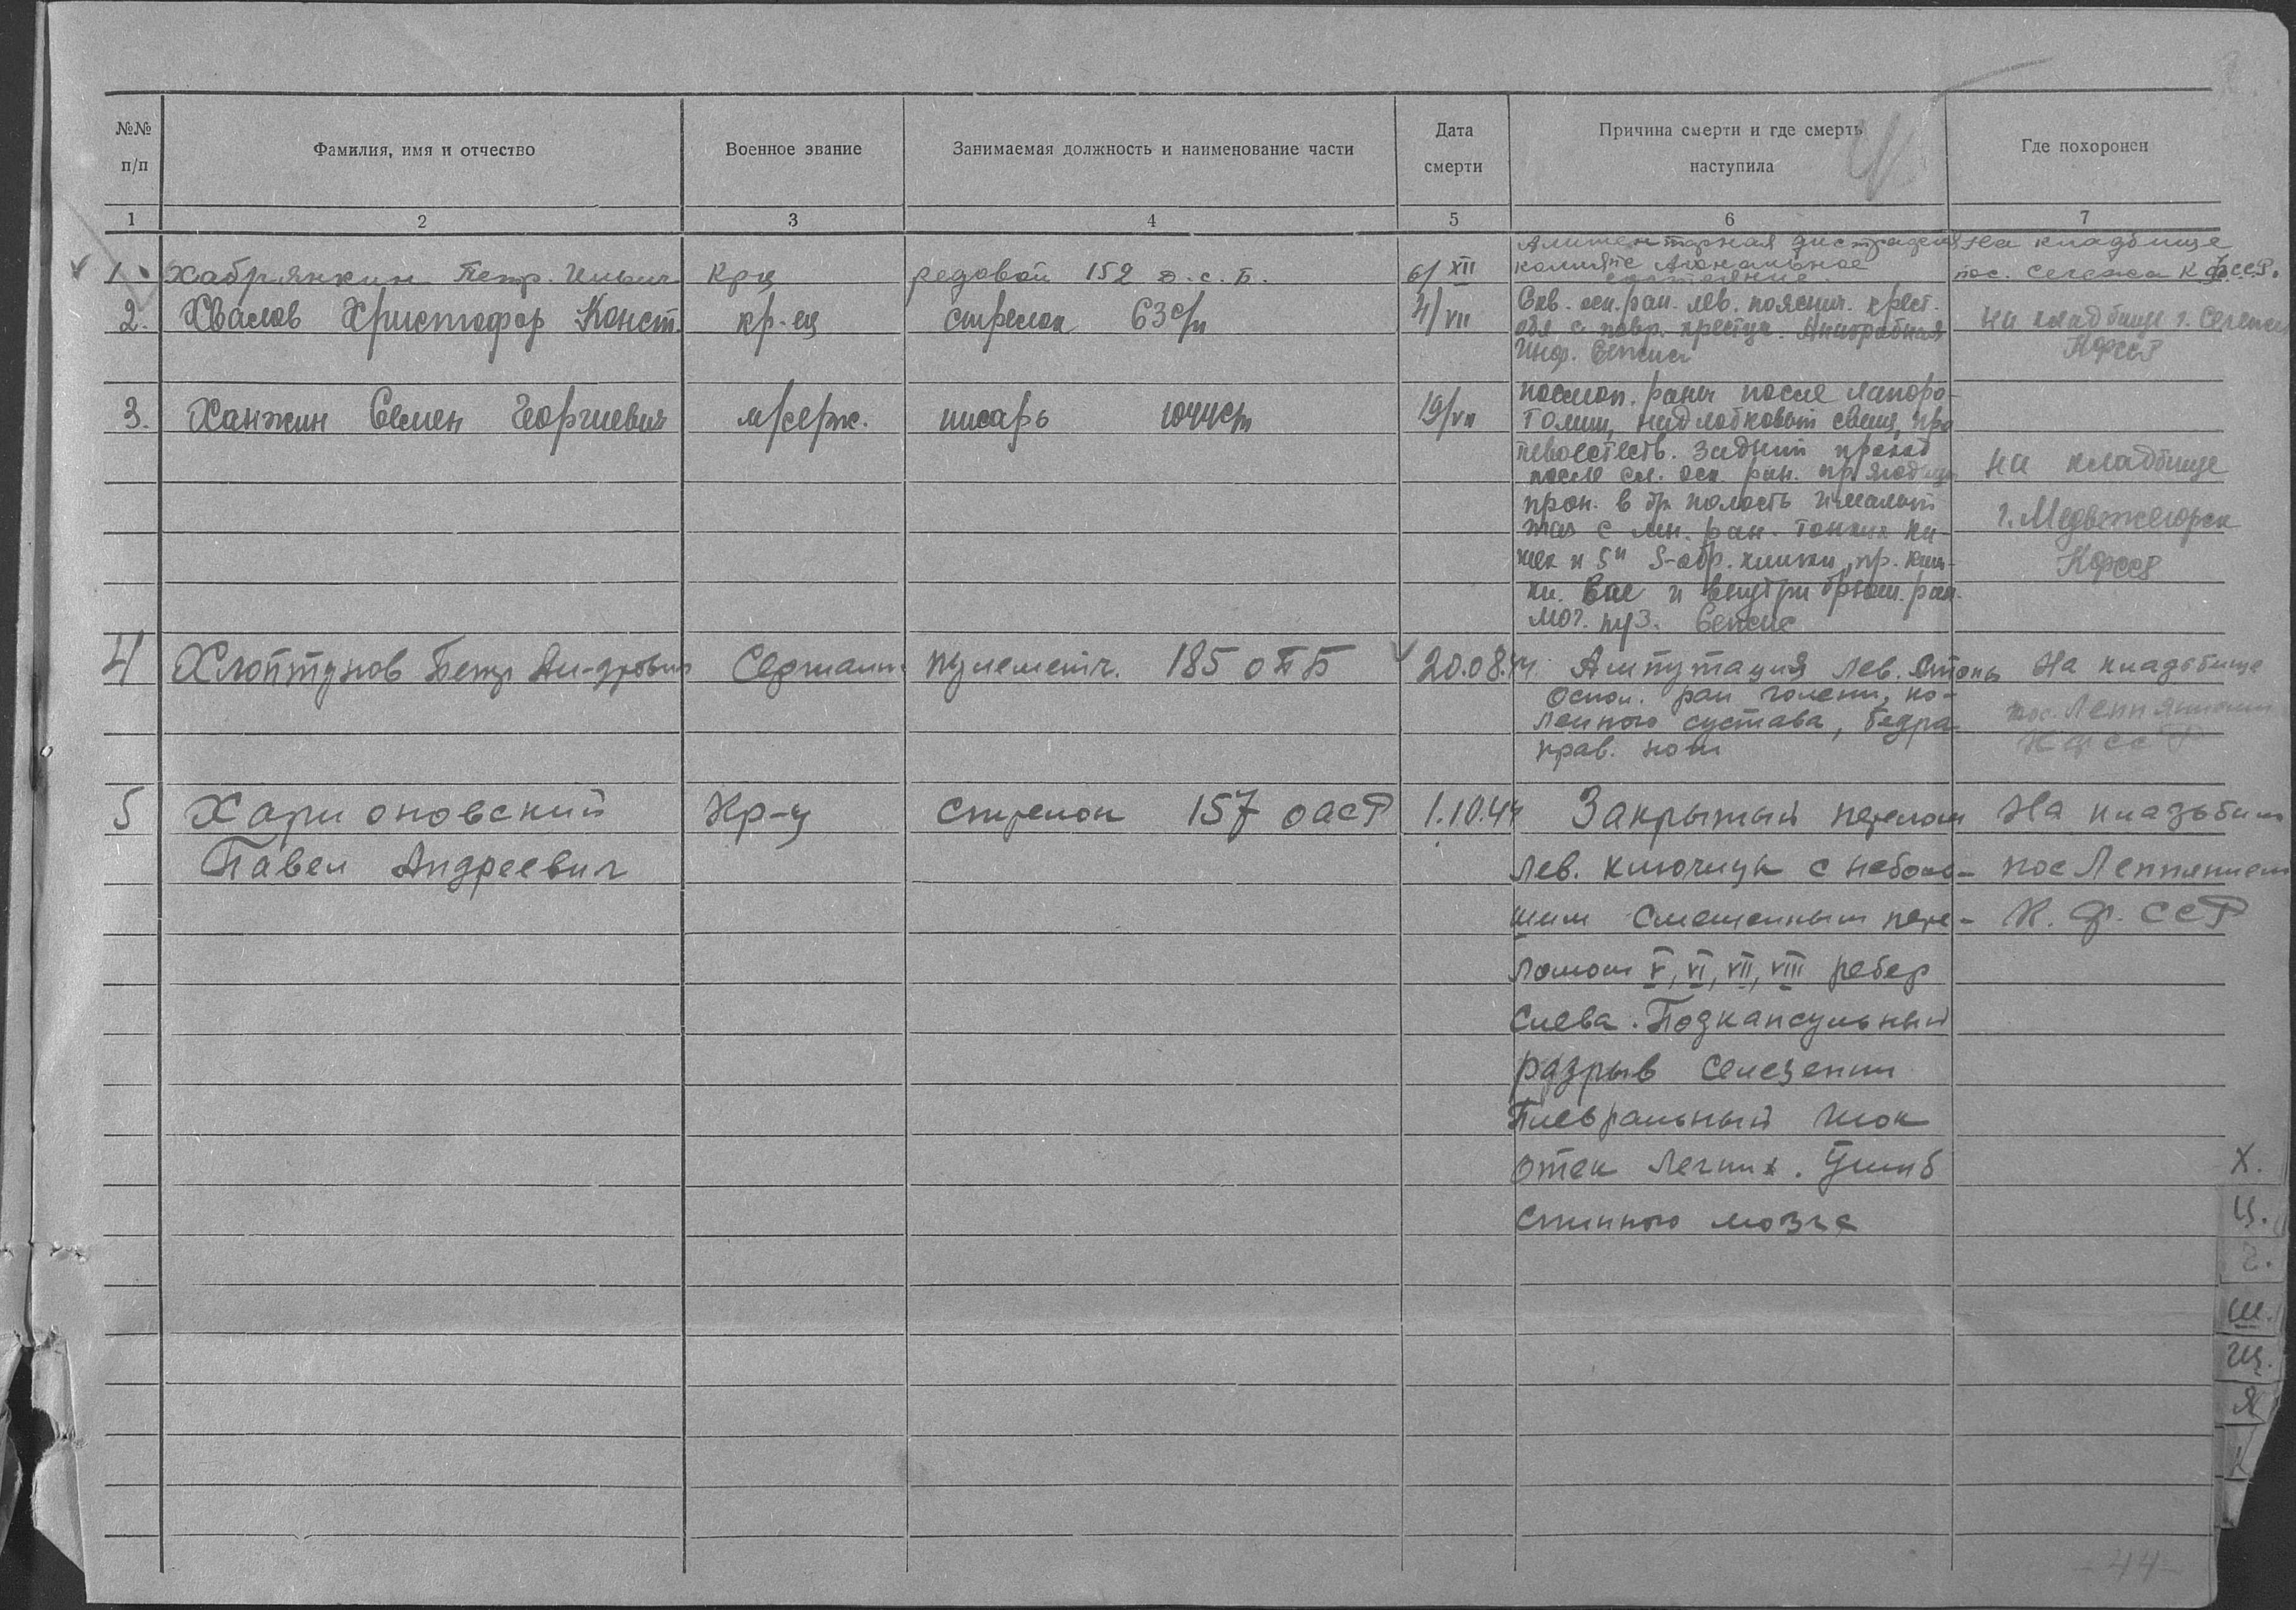 №№ п/п
Фамилия, имя и отчество
Военное звание
Занимаемая должность и наименование части
Дата смерти
Причина смерти и где смерть
наступила
Где похоронен
1 2 3 4 5 6 7
1. Хабрянкин Петр. Ильич Крц редовой 152 о.с.б. 6/XII
Алиментарная дистрофия
Агональное
состояние
На кладбище
пос. Сегежа К.ФССР.
2. Хвалов Христофор Конст. кр-ец стрелок 63 с/п 4/VII
Скв. оск. ран. лев. пояснич. крест.
обл с повр. крестца. Анаэробная
Инф. Сепсис
на кладбище г. Сегежи
КФССР
3. Ханжин Семен Георгиевич м/серж. писарь 1044сп 19/VII
послеоп. раны после лапоро-
томии, надлобковый свищ, про
тивоестеств. задний проход
после сл. оск. ран. пр. ягодицы
прон. в бр. полость и малый
таз с мн. ран. тонких ки-
шек и S-обр. кишки, пр. киш-
ки. Вне и внутри брюш. ран.
моч. пуз. Сепсис
на кладбище
г. Медвежегорск
КФССР
4 Хлоптунов Петр Ан-дрович Сержант пулеметч. 185 ОПБ 20.08.44
Ампутация лев. стопы
Оскол. ран голени, ко-
ленного сустава, бедра
прав. ноги
На кладбище
пос. Леппясюрья
КФССР
5 Харионовский Кр-ц Стрелок 157 ОАСР 1.10.44
Павел Андреевич
Закрытый перелом
лев. ключицы с неболь-
шим смещенным пере-
ломом V, VI, VII, VIII ребер
Слева. Подкапсульный
разрыв селезенки
Плевральный шок
Отек легких. Ушиб
спинного мозга
На кладбищ
пос Леппясюрья
К. Ф. ССР
Х.
Ц.
Ч.
Ш.
Щ.
Я
44